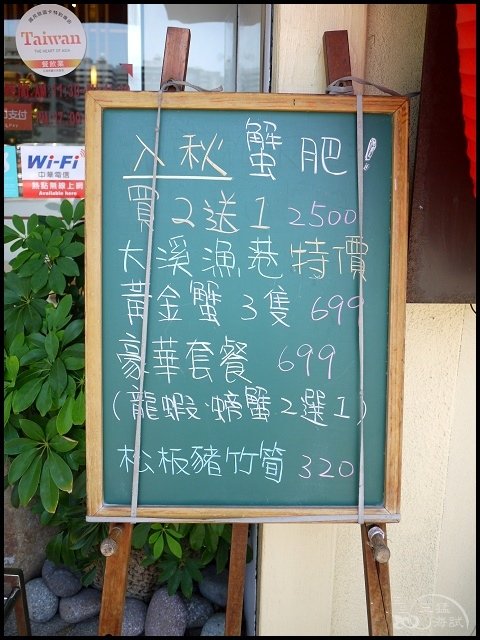 Taiwan
THE HEART OF ASIA
餐飲業
Wi-Fi
中華電信
熱點無線上網
Available here
入秋 蟹肥!
買2送1 2500
大溪漁巷特價
黃金蟹3隻 699
豪華套餐 699
(龍蝦.螃蟹2選1)
松板豬竹筍 320